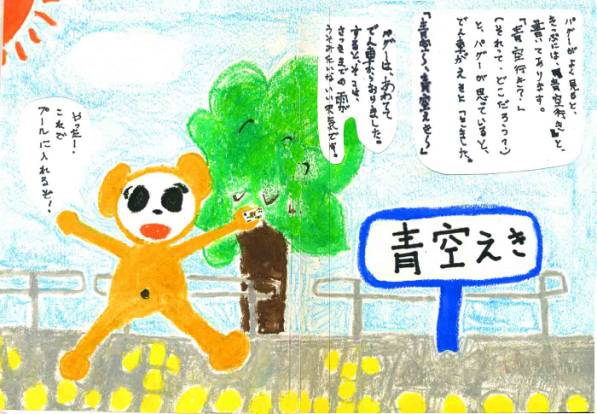 パグーがよく見ると、
きっぷには、「青空行き」と、
書いてあります。
「青空行き？」
(それって、どこだろう？)
と、パグーが思っていると、
でん車がえきに つきました。
「青空〜、青空えき〜」
パグーは、あわてて
でん車からおりました。
すると、そこは、
さっきまでの雨が
うそみたいないい天気です。
やったー！
これで
プールに入れるぞ！
青空えき